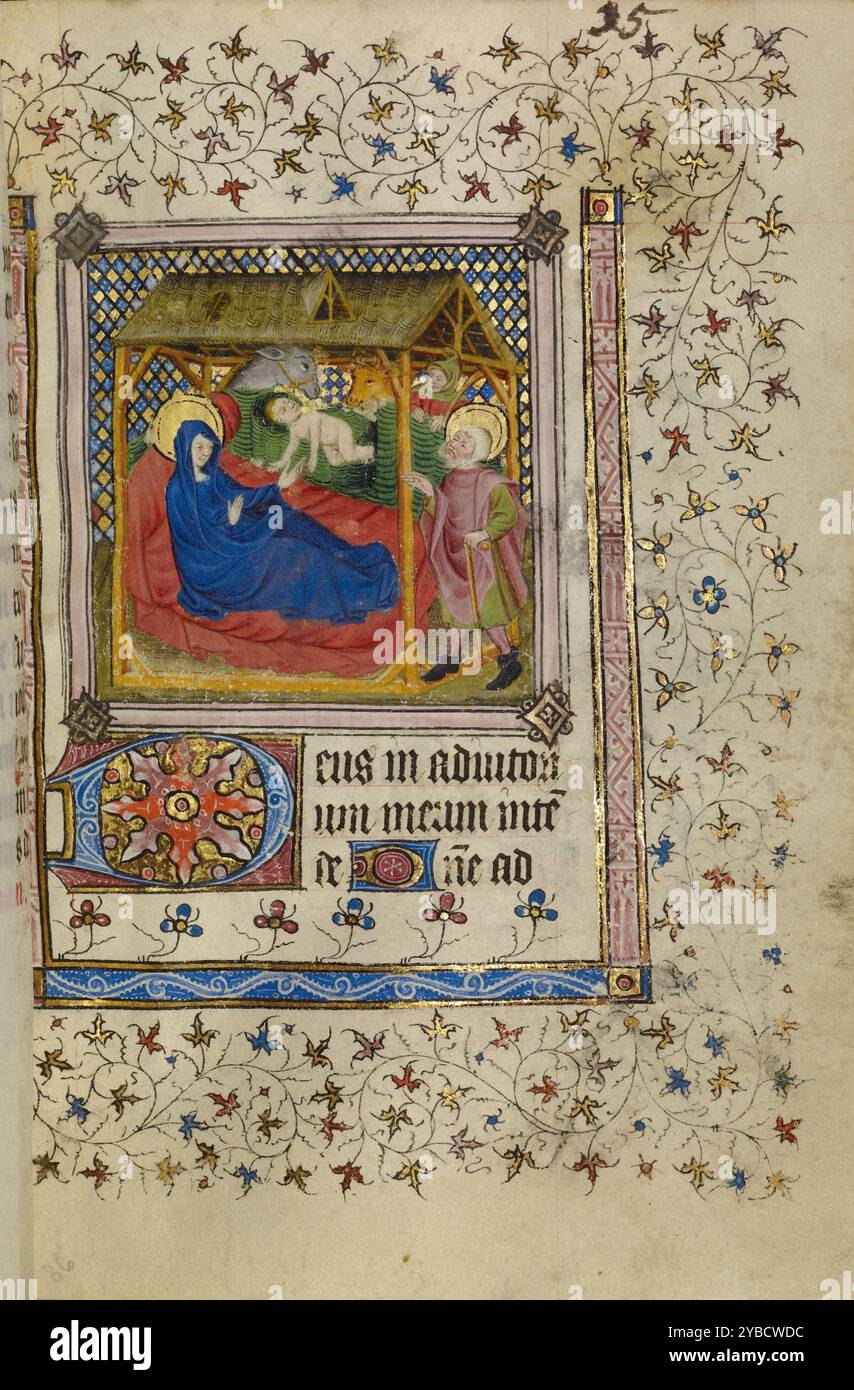 35
Deus in adiutori
um meum inte͂
de D n̄e ad
alamy
Image ID: 2YBCWDC
www.alamy.com